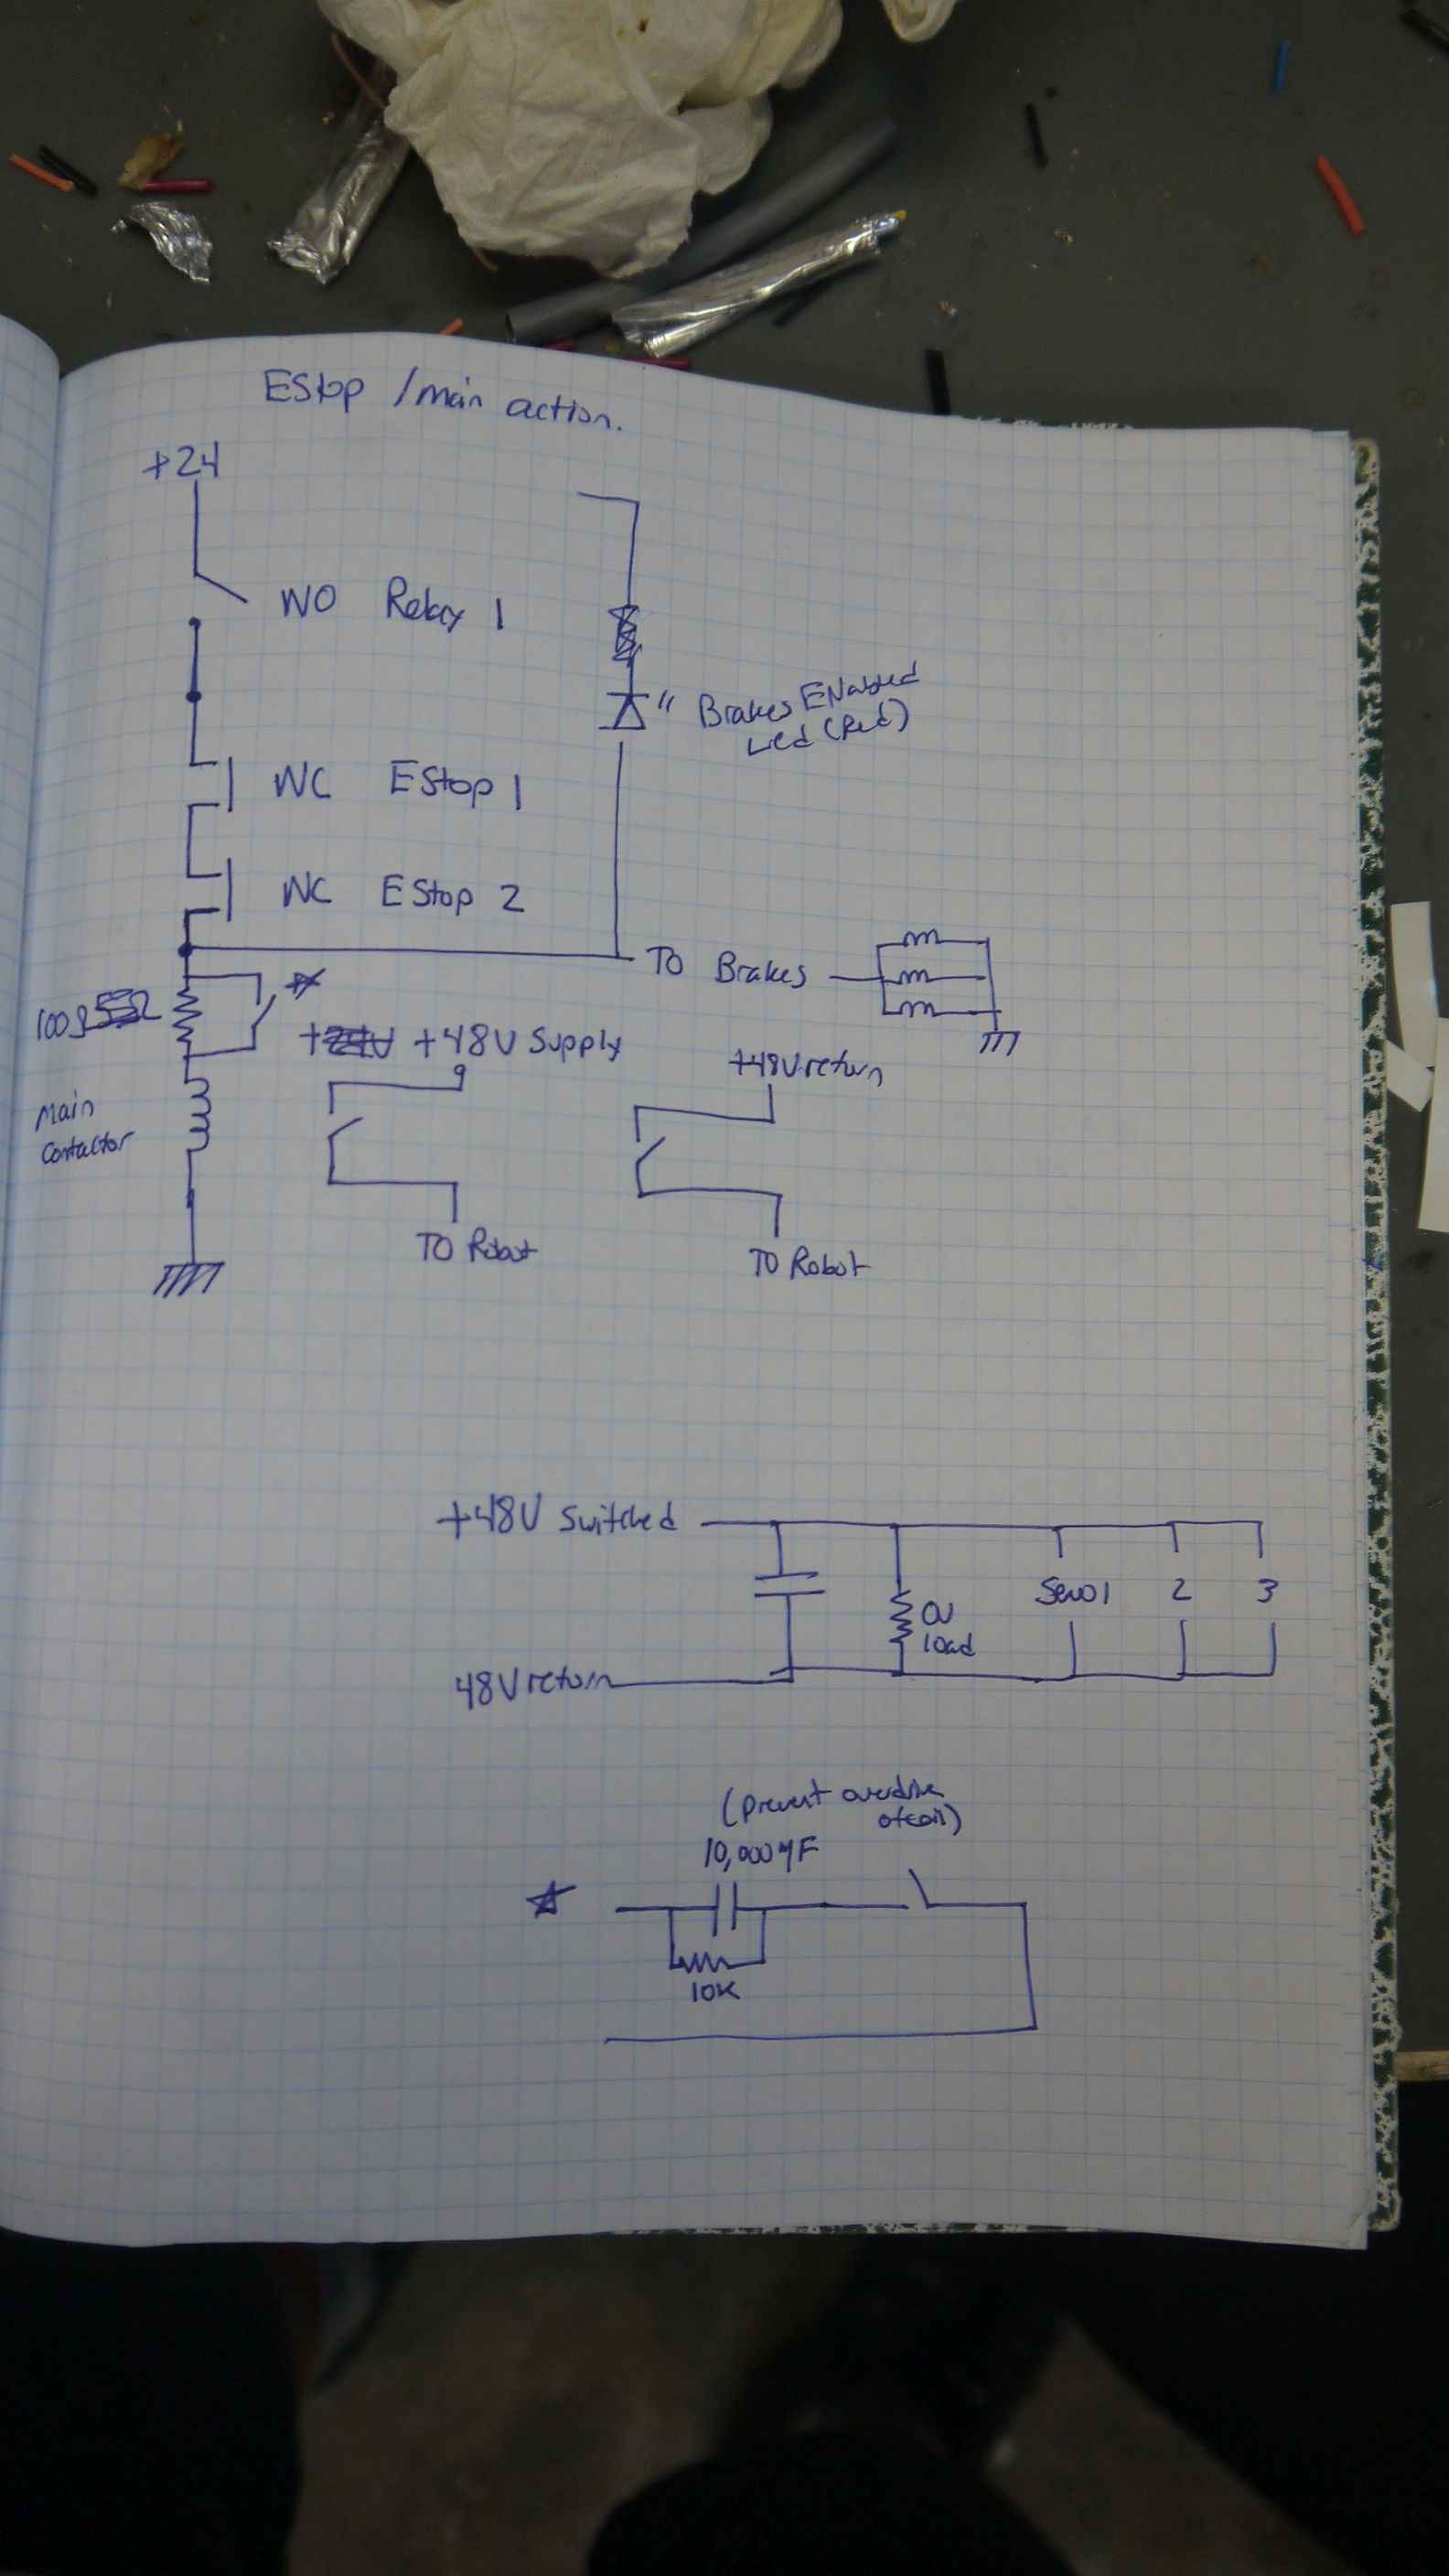 EStop / main action.
+24
NO Relay 1
" Brakes ENabled
Led (Red)
NC EStop 1
NC EStop 2
TO Brakes
100Ω
+48V Supply
+48V return
Main
Contactor
TO Robot
TO Robot
+48V Switched
Servo 1
2
3
OV
load
48V return
(prevent overdrive
of coil)
10,000 µF
10K